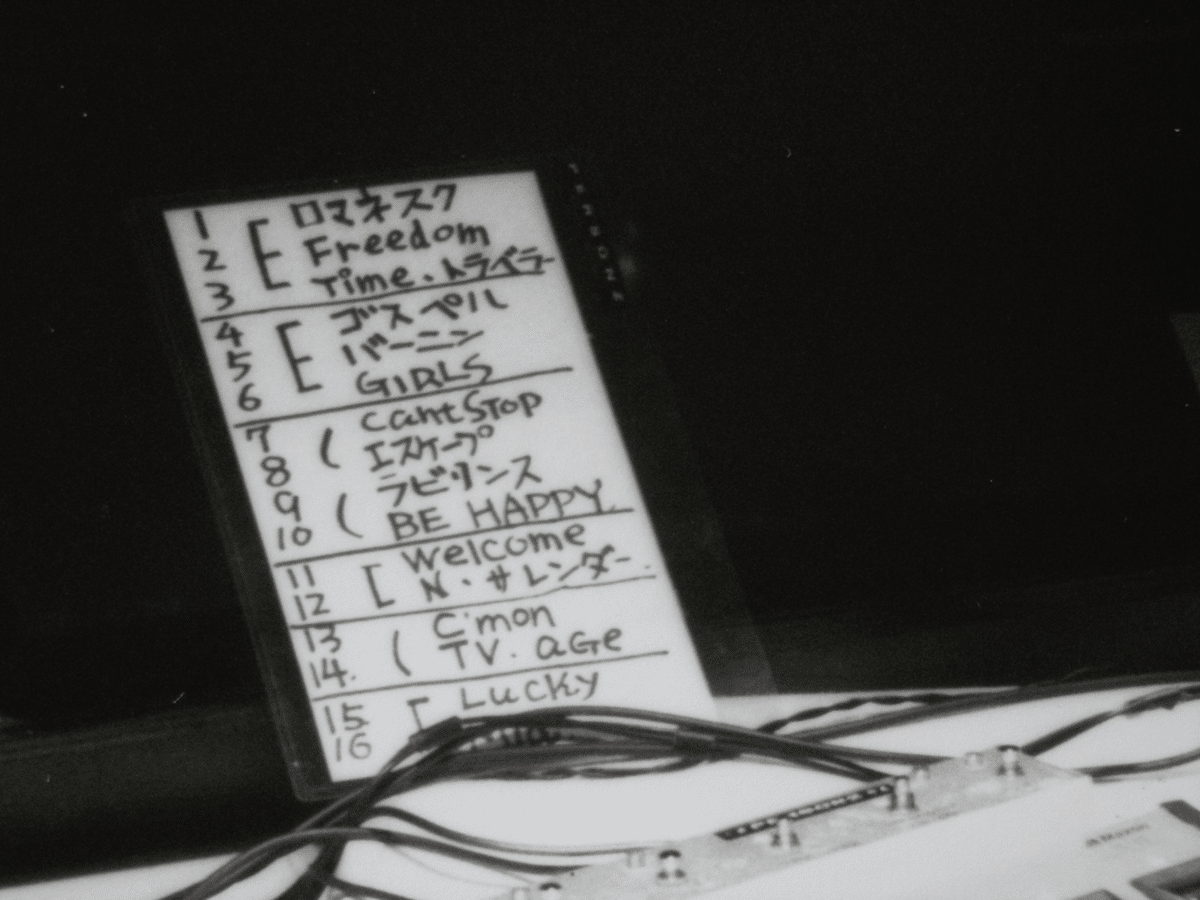 1 ロマネスク
2 Freedom
3 Time・トラベラー
4 ゴスペル
5 バーニン
6 GIRLS
7 Can't Stop
8 エスケープ
9 ラビリンス
10 BE HAPPY
11 Welcome
12 N・サレンダー
13 C'mon
14. TV. aGe
15 Lucky
16